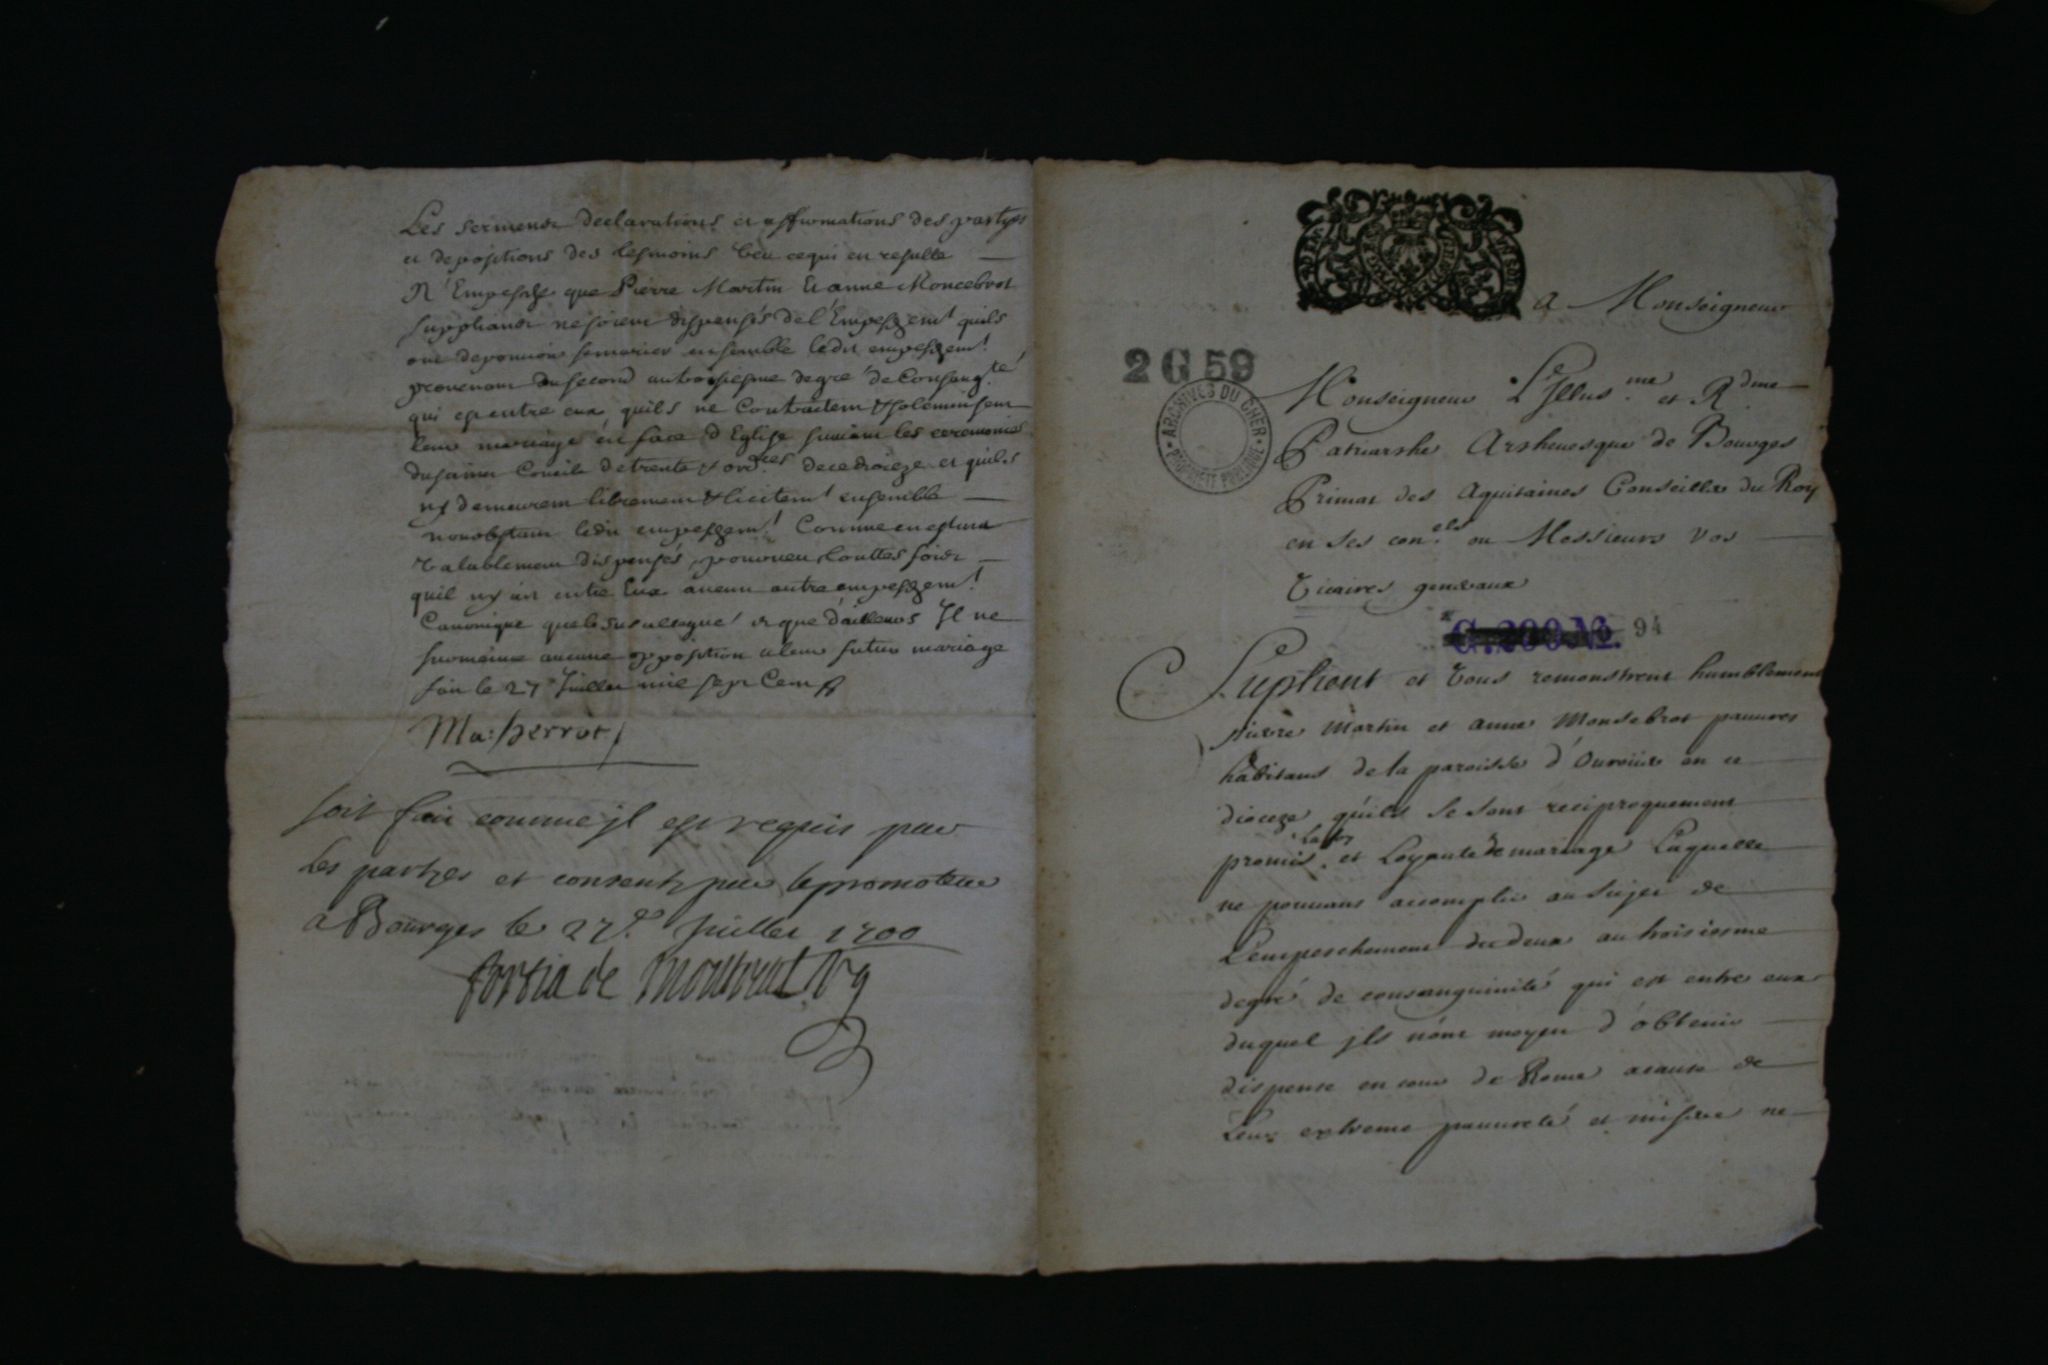 Les sermens declarations et affirmations des partyes
et depositions des tesmoins Veu ce qui en resulte
N'Empesche que Pierre Martin Et anne Moncebrot
suppliants ne soient dispensés de l'Empeschem.t quils
ont de pouvoir se marier ensemble ledit empeschem.t
provenant du second au troisiesme degré de Consang.té
qui est entre eux quils ne Contractent & solemnisent
leur mariage én face d'Eglise suivant les ceremonies
du saint Concile de trente & ord.ces de ce dioceze et quils
ny demeurent librement & licitem.t ensemble
nonobstant ledit empeschem.t Comme en estant
Valablement dispensés, pourveu touttes fois
quil ny ait entre Eux aucun autre empeschem.t
Canonique que le susallegué et que d'ailleurs Il ne
survienne aucune opposition a leur futur mariage
fait le 27e Juillet mil sept Cens
Ma: herrot
soit fait comme jl est requis par
les partyes et consenty par le promoteur
a Bourges le 27.e Juillet 1700
fortia de Montreal Vg
a Monseigneur
2 G 59
ARCHIVES DU CHER
PROPRIÉTÉ PUBLIQUE
Monseigneur L'Jllus.me et R.dme
Patriarshe Arsheuesque de Bourges
Primat des Aquitaines Conseiller du Roy
en ses con.els ou Messieurs Vos
Vicaires generaux
94
Suplient et Vous remonstrent humblement
pierre Martin et anne Monsebrot pauures
habitans de la paroisse d' en ce
dioceze quils se sont reciproquement
promis la foy et Loyauté de mariage Laquelle
ne pouuans accomplir au sujet de
L'empeschement du deux au troisiesme
degré de consanguinité qui est entre eux
duquel jls n'ont moyen d'obtenir
dispense en cour de Rome a cause de
Leur extreme pauureté et misere ne